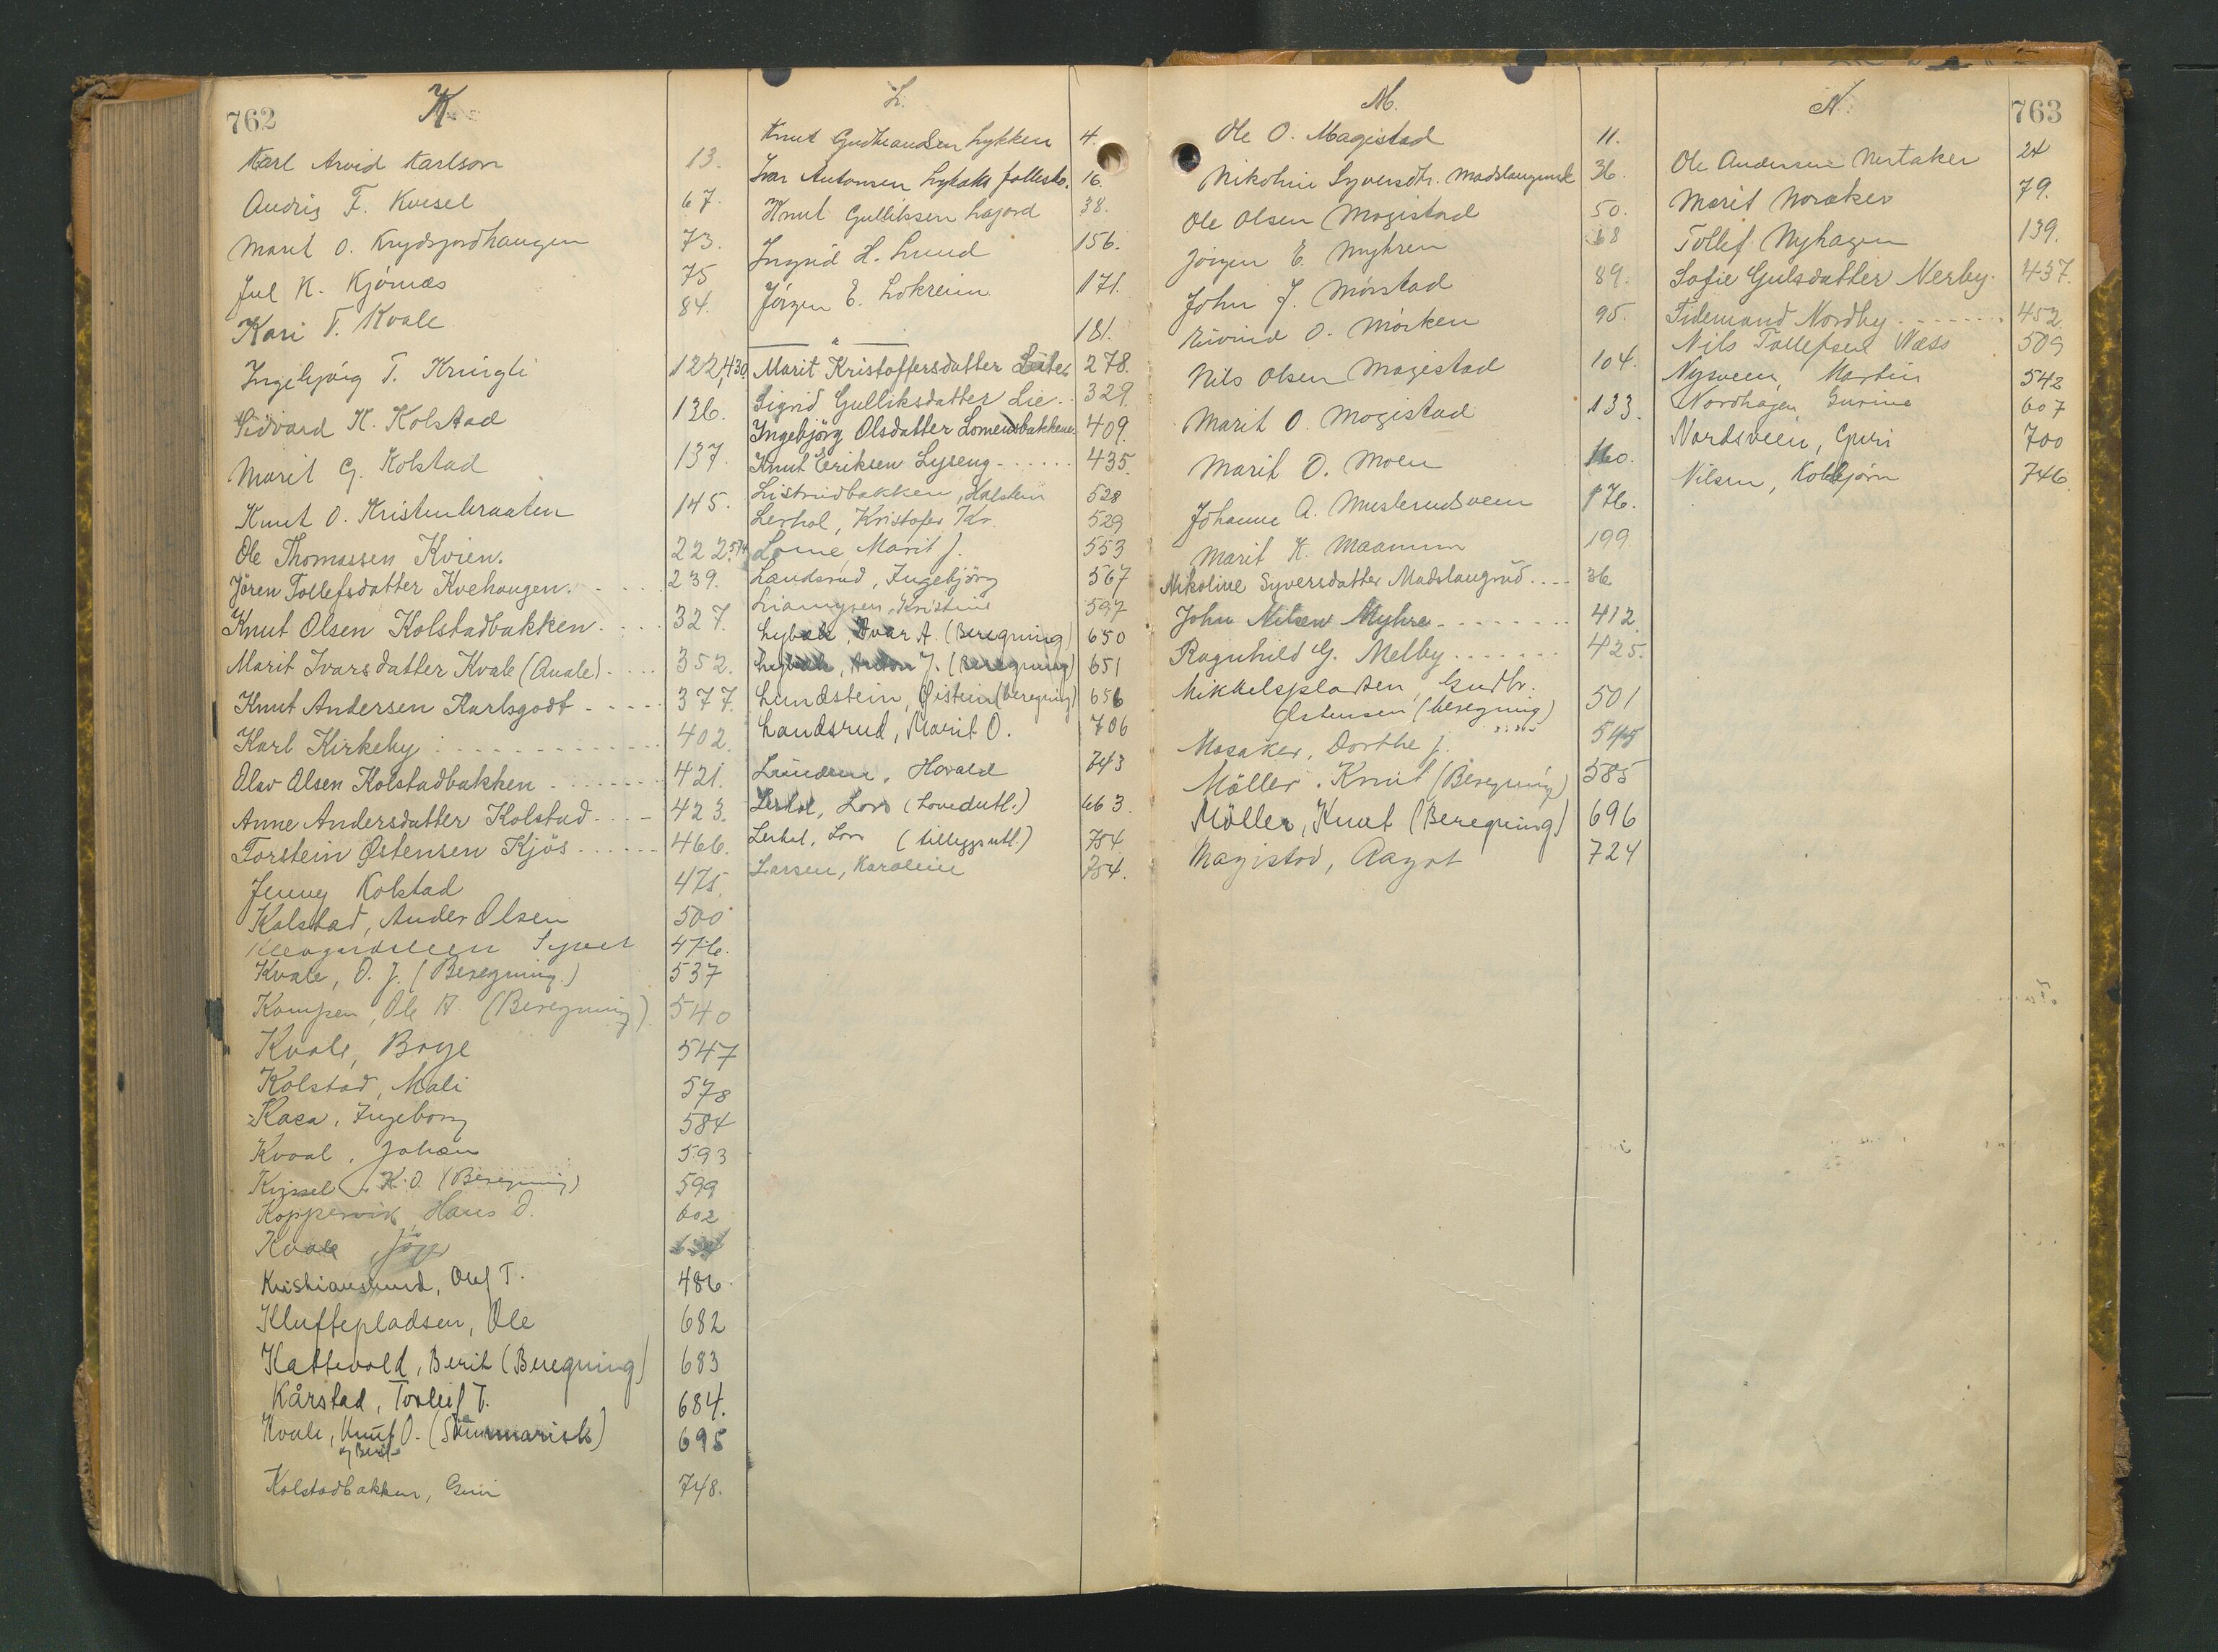 762
K.
Karl Arvid Karlson 13.
Andris F. Kvesel 67.
Marit O. Krydsjordhaugen 73.
Jul N. Kjörnæs 75
Kari T. Kvale 84.
Ingebjörg T. Kringli 122,430
Sidvard K. Kolstad 136.
Marit G. Kolstad 137.
Knut O. Kristenbraaten 145.
Ole Thomassen Kvien. 222
Jören Tollefsdatter Kvehaugen. 239.
Knut Olsen Kolstadbakken. 327.
Marit Ivarsdatter Kvale (Quale) 352.
Knut Andersen Karlsgodt 377.
Karl Kirkeby 402.
Olav Olsen Kolstadbakken 421.
Anne Andersdatter Kolstad 423.
Torstein Østensen Kjös 466.
Jenny Kolstad 475.
Kolstad, Ander Olsen 500
Syver 476.
Kvale, O. J. (Beregning.) 537
Kompen, Ole A (Beregning) 540
Kvale, Boye 547
Kolstad, Mali 578
Kasa, Ingeborg 584
Kvaal, Johan 593
K.O. (Beregning) 599
Koppervik, Hans O. 602
Kvale
Kristiansund, Olaf T. 486.
Kluftepladsen, Ole 682
Kattevold, Berit (Beregning) 683
Kårstad, Torleif T. 684.
Kvale, Knut O. (Summarisk) 695
og Berit
Kolstadbakken, Guri 748.
L.
Knut Gudbrandsen Lykken 4.
Ivar Antonsen 16.
Knut Gulliksen Lajord 38.
Ingrid H. Lund 156.
Jörgen E. Lokreim 171.
— " — 181.
Marit Kristoffersdatter 278.
Sigrid Gulliksdatter Lie 329.
Ingebjörg Olsdatter Lomensbakkene 409.
Knut Eriksen Lyseng 435.
Listrudbakken, Halstein 528
Lerhol, Kristofer Kr. 529
Lome, Marit J. 553
Landsrud, Ingebjörg 567
Kristine 597
Ivar A. (Beregning) 650
Anton J. (Beregning) 651
Lundstein, Øistein (beregning) 656
Landsrud, Marit O. 706
Harald 743
Lerhol, Lars (Lovedutl.) 663.
Lerhol, Lars (tilleggsutl.) 754
Larsen, Karoline 754.
M.
Ole O. Magistad 11.
Nikoline Syversdtr. Madslangrud 36.
Ole Olsen Magistad 50.
Jörgen E. Myhren 68
John J. Mörstad 89.
Eivind O. Mörken 95.
Nils Olsen Magistad 104.
Marit O. Mogistad 133.
Marit O. Moen 160.
Johanne A. Musterudsveen 176.
Marit K. Maanum 199
Nikoline Syversdatter Madslangrud 36
John Nilsen Myhre 412.
Ragnhild G. Melby 425.
Mikkelspladsen, Gudbr. 501
Østensen (beregning)
Mosaker, Dorthe J. 545
Möller, Knut (Beregning) 585
Möller, Knut (Beregning) 696
Magistad, Aagot 724
N. 763
Ole Andersen Nertaker 24
Marit Noraker 79.
Tollef Nyhagen 139.
Sofie Gulsdatter Nerby. 437.
Tidemand Nordby 452.
Nils Tollefsen Næss 509
Nysveen, Martin 542
Nordhagen, Gurine 607
Nordsveen, Guri 700
Nilsen, Kolbjørn 746.